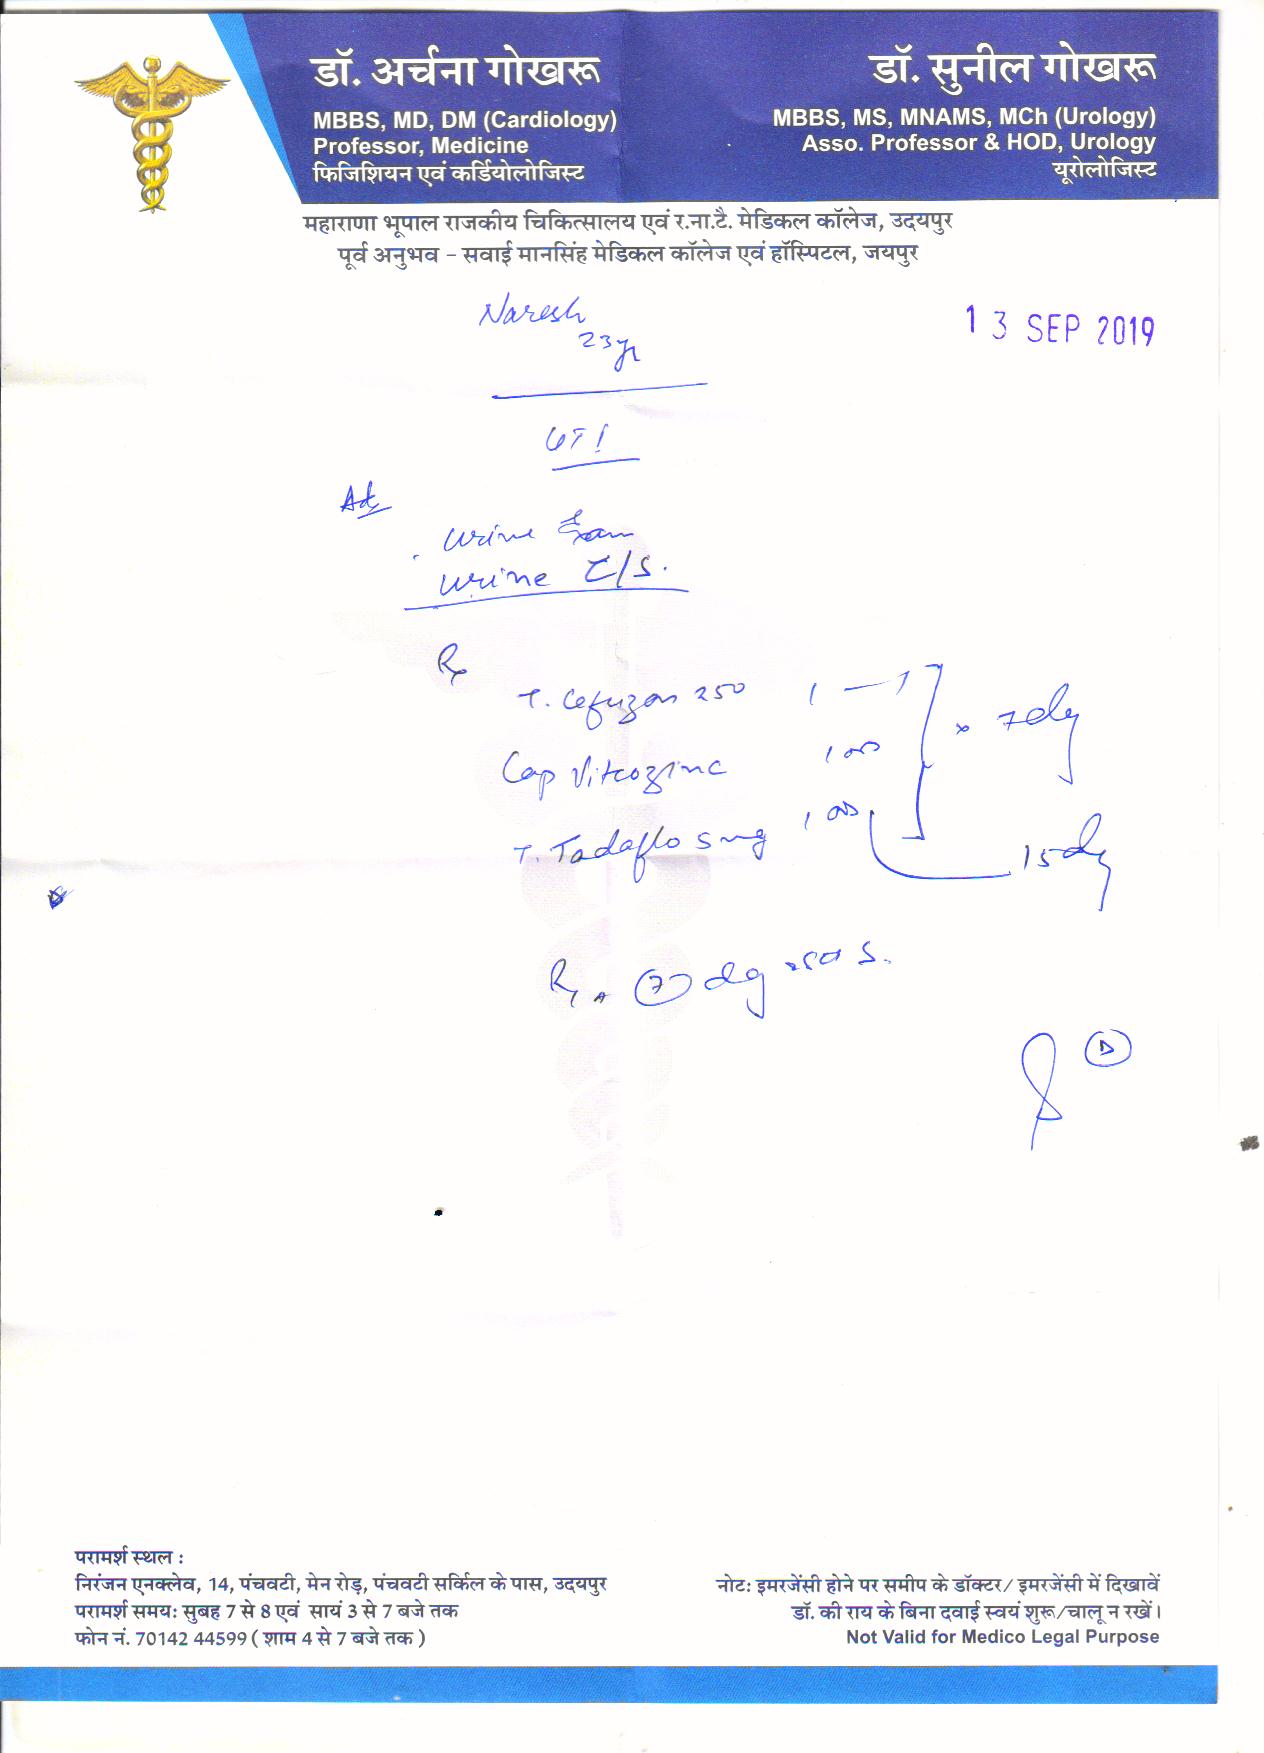 डॉ. अर्चना गोखरू
MBBS, MD, DM (Cardiology)
Professor, Medicine
फिजिशियन एवं कर्डियोलोजिस्ट
डॉ. सुनील गोखरू
MBBS, MS, MNAMS, MCh (Urology)
Asso. Professor & HOD, Urology
यूरोलोजिस्ट
महाराणा भूपाल राजकीय चिकित्सालय एवं र.ना.टै. मेडिकल कॉलेज, उदयपुर
पूर्व अनुभव - सवाई मानसिंह मेडिकल कॉलेज एवं हॉस्पिटल, जयपुर
Naresh
23yr
13 SEP 2019
UTI
Adv
Urine Exam
Urine C/S.
Rx
T. Cefuzon 250 1 — 1 x 7day
Cap Vitcozinc 1 OD
T. Tadaflo 5mg 1 OD 15day
7 day
परामर्श स्थल :
निरंजन एनक्लेव, 14, पंचवटी, मेन रोड़, पंचवटी सर्किल के पास, उदयपुर
परामर्श समय: सुबह 7 से 8 एवं सायं 3 से 7 बजे तक
फोन नं. 70142 44599 ( शाम 4 से 7 बजे तक )
नोट: इमरजेंसी होने पर समीप के डॉक्टर/ इमरजेंसी में दिखावें
डॉ. की राय के बिना दवाई स्वयं शुरू/चालू न रखें।
Not Valid for Medico Legal Purpose